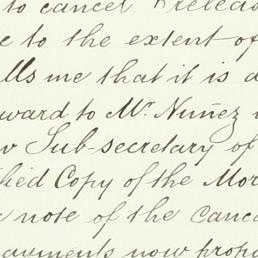 to cancel & releas
e to the extent of
lls me that it is d
ward to Mr. Nuñez
w Sub-secretary of
hed Copy of the Mor
note of the Cance
ayments now propo